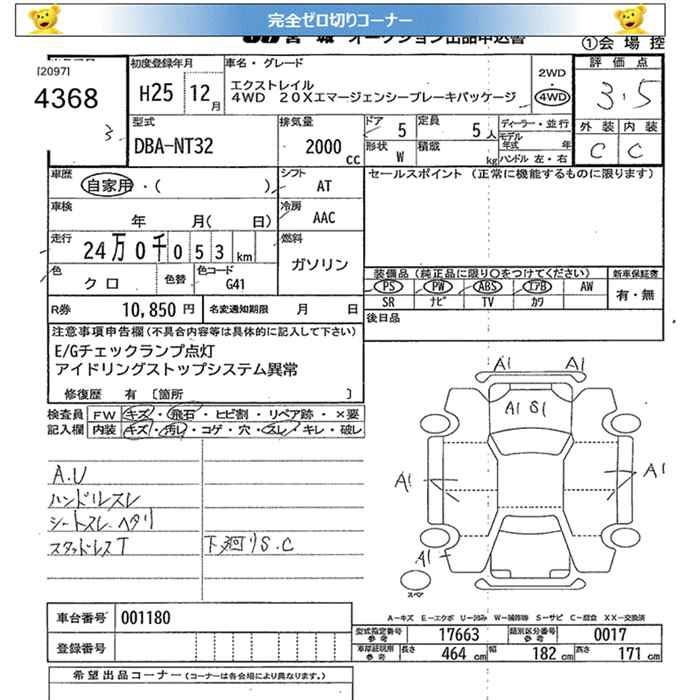 完全ゼロ切りコーナー
JU 宮 城 オークション出品申込書
①会 場 控
[2097]
4368
3
初度登録年月
H25 12月
車名・グレード
エクストレイル
4WD 20Xエマージェンシーブレーキパッケージ
2WD・4WD
評 価 点
3.5
外 装 内 装
C C
型式
DBA-NT32
排気量
2000 cc
ドア 5
定員 5人
形状 W
積載 kg
ディーラー・並行
モデル年式 年
ハンドル 左・右
車歴
自家用・( )
シフト AT
車検 年 月( 日)
冷房 AAC
走行 24万0千053km
燃料 ガソリン
色 クロ
色替
色コード G41
セールスポイント (正常に機能するものに限ります)
装備品(純正品に限り○をつけてください)
PS PW ABS エアB AW
SR ナビ TV カワ
新車保証書
有・無
R券 10,850円
名変通知期限 月 日
後日品
注意事項申告欄(不具合内容等は具体的に記入して下さい)
E/Gチェックランプ点灯
アイドリングストップシステム異常
修復歴 有 〔箇所 〕
検査員記入欄
FW キズ・飛石・ヒビ割・リペア跡・×要
内装 キズ・汚レ・コゲ・穴・スレ・キレ・破レ
A.U
ハンドルスレ
シートスレ ヘタリ
スタッドレスT
下廻りS.C
A1 A1
A1 S1
A1 A1
A1
スペア
A－キズ E－エクボ U－凹み W－補修跡 S－サビ C－腐食 XX－交換済
車台番号 001180
登録番号
型式指定番号参考 17663
類別区分番号参考 0017
長さ 464 cm
幅 182 cm
高さ 171 cm
希望出品コーナー(コーナーは各会場により異なります。)